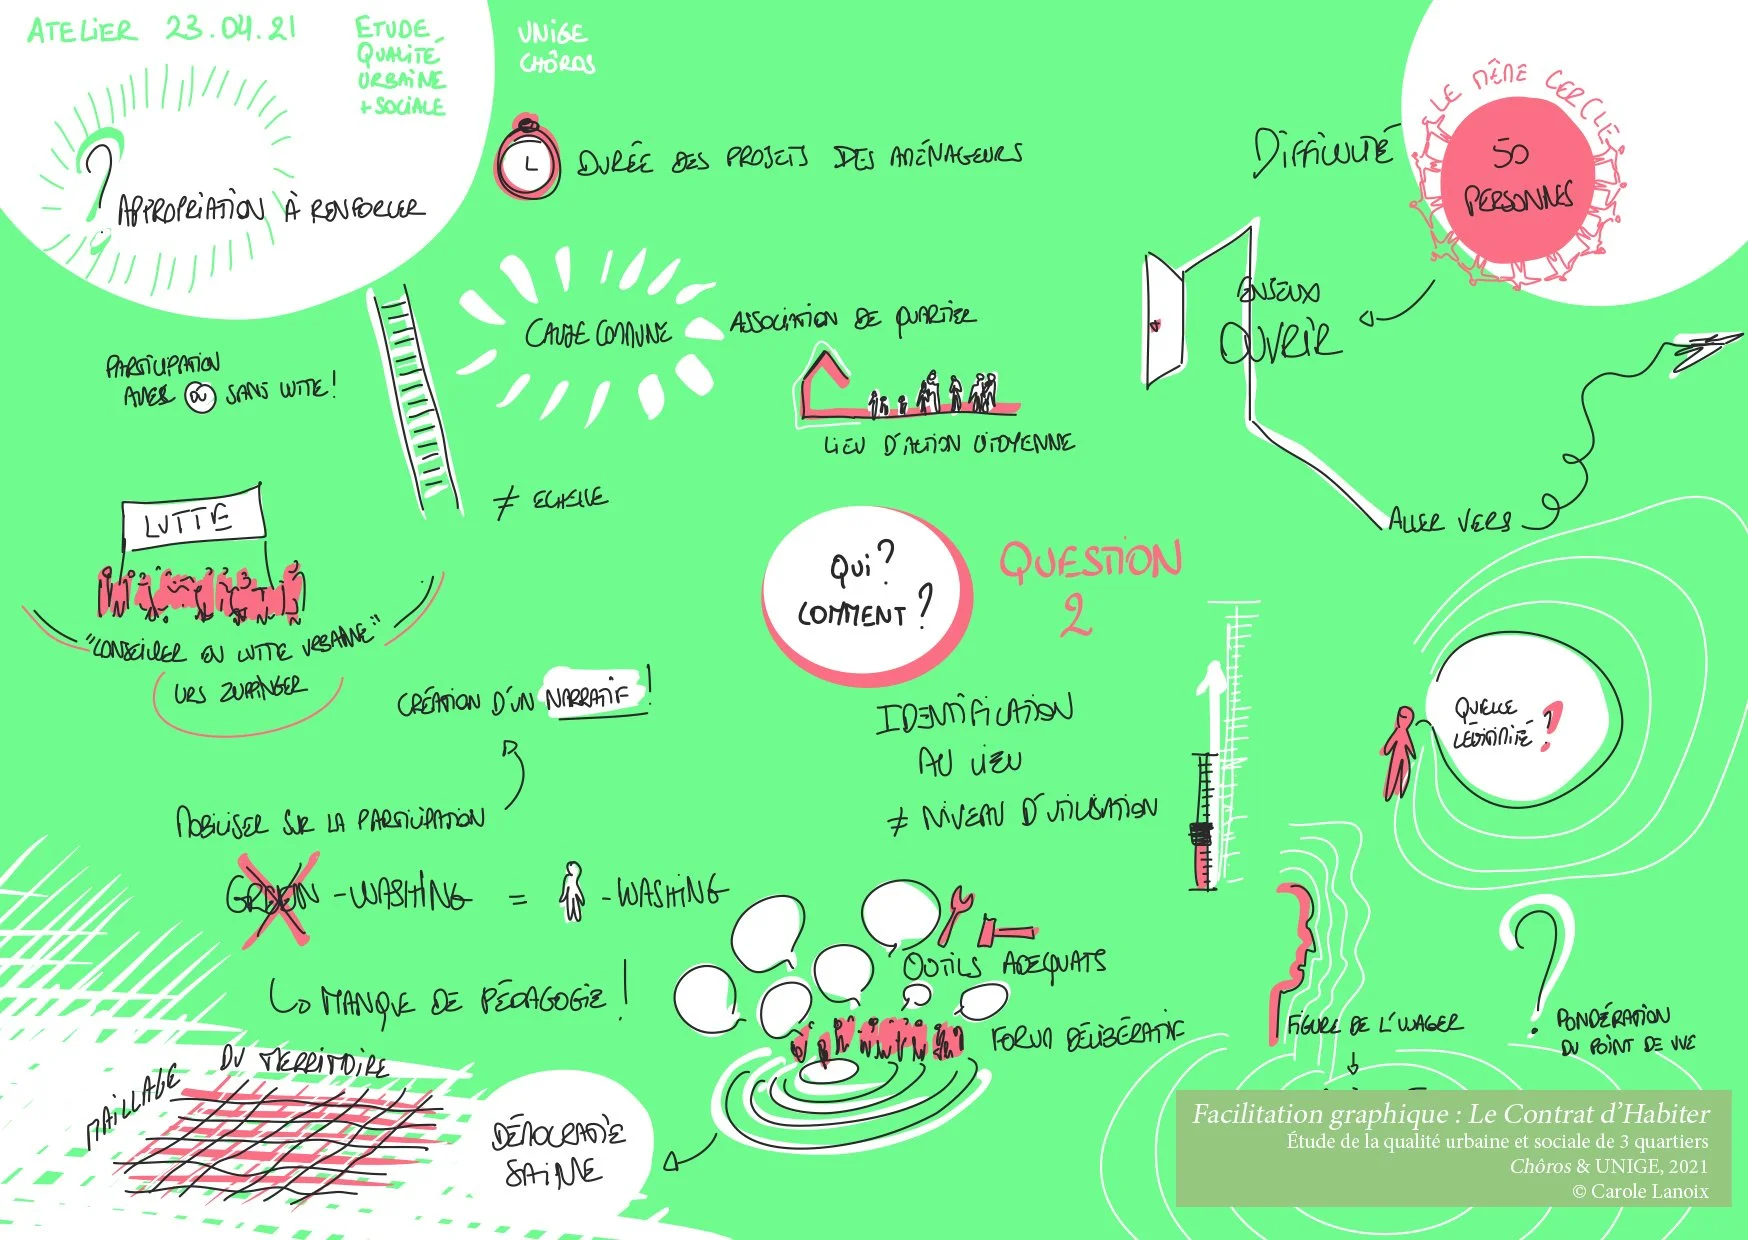 ATELIER 23.04.21
ETUDE
QUALITÉ
URBAINE
+ SOCIALE
UNIGE
CHÔROS
? APPROPRIATION À RENFORCER
DURÉE DES PROJETS DES AMÉNAGEURS
DIFFICULTÉ
LE MÊME CERCLE
50
PERSONNES
ENJEUX
OUVRIR
ALLER VERS
CAUSE COMMUNE
ASSOCIATION DE QUARTIER
LIEU D'ACTION CITOYENNE
PARTICIPATION
AVEC OU SANS LUTTE!
≠ ECHELLE
LUTTE
"CONSEILLER EN LUTTE URBAINE"
URS ZUPPINGER
QUI?
COMMENT?
QUESTION
2
CRÉATION D'UN NARRATIF!
MOBILISER SUR LA PARTICIPATION
IDENTIFICATION
AU LIEU
≠ NIVEAU D'UTILISATION
QUELLE
LÉGITIMITÉ?
GREEN-WASHING = -WASHING
MANQUE DE PÉDAGOGIE!
OUTILS ADEQUATS
FORUM DÉLIBÉRATIF
FIGURE DE L'USAGER
? PONDÉRATION
DU POINT DE VUE
MAILLAGE DU TERRITOIRE
DÉMOCRATIE
SAINE
Facilitation graphique : Le Contrat d'Habiter
Étude de la qualité urbaine et sociale de 3 quartiers
Chôros & UNIGE, 2021
© Carole Lanoix